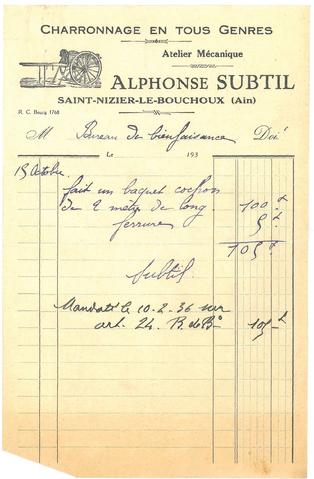 CHARRONNAGE EN TOUS GENRES
Atelier Mécanique
ALPHONSE SUBTIL
SAINT-NIZIER-LE-BOUCHOUX (Ain)
R. C. Bourg 1768
M Bureau de bienfaisance Doit
Le 193
15 Octobre.
fait un baquet cochon
de 2 mètre de long 100 f
ferrure 5 f
105 f
Subtil
Mandaté le 10-2-36 sur
art. 24. B. de B 105 f